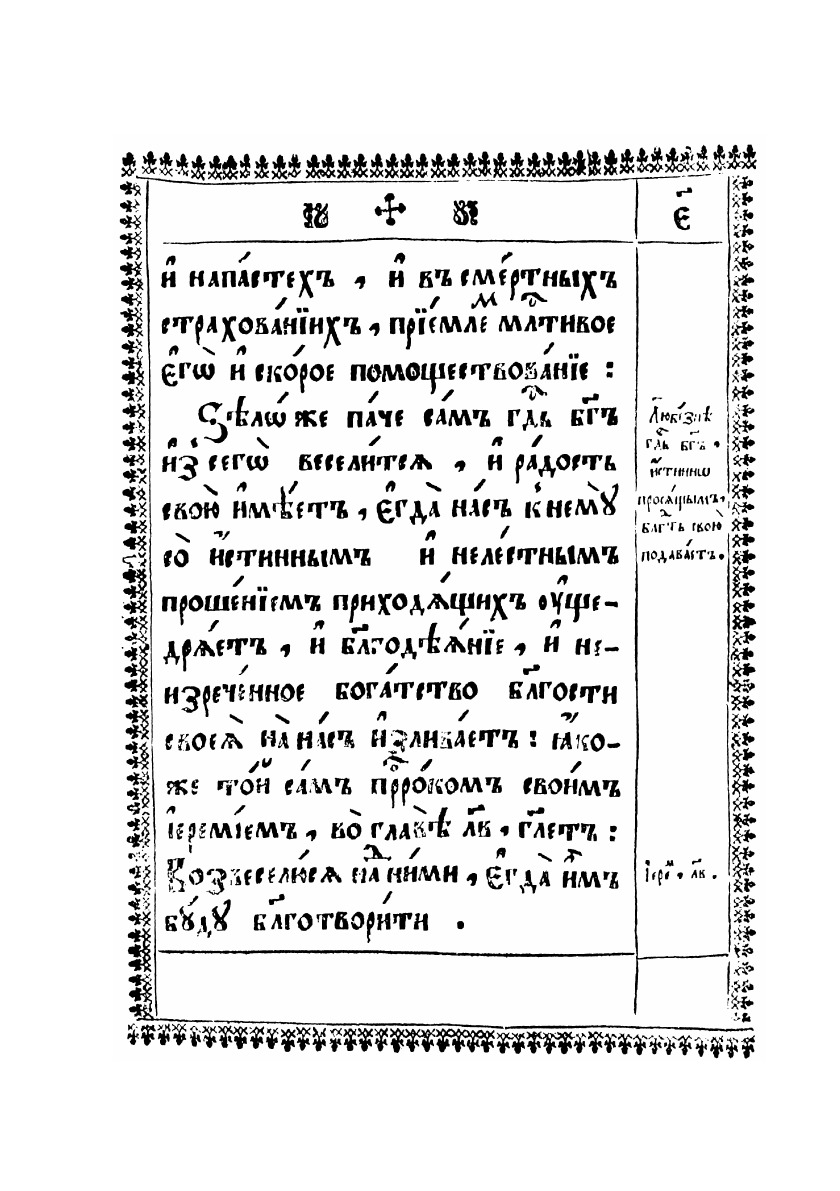 Є҃
и҆ напа́стехъ , и҆ въ сме́ртных̾ъ
страхова́нїихъ , прїе́мле мⷭ҇тивое
є҆гѡ̀ и҆ ско́рое помоществова́нїе :
Ѕѣлѡ́ же па́че са́мъ гдⷭ҇ь бг҃ъ
и҆з̾ сегѡ̀ весели́тсѧ , и҆ ра́дость
свою̀ и҆мѣ́етъ , є҆гда̀ на́съ к̾ немꙋ̀
со и҆́стиннымъ и҆ неле́стнымъ
проше́нїемъ приходѧ́щихъ ᲂу҆ще-
дрѧ́етъ , и҆ бл҃годѣѧ́нїе , и҆ не-
изрече́нное бога́тство бл҃гости
своеѧ̀ на̀ на́съ и҆злива́етъ : ꙗ҆́ко-
же то́й са́мъ прⷪ҇ро́комъ свои́мъ
і҆еремі́емъ , во̀ главѣ̀ л҃в , гл҃етъ :
Возвеселю́сѧ на́д̾ ни́ми , є҆гда̀ и҆̀мъ
бꙋ́дꙋ бл҃готвори́ти .
Любе́знѣ
гдⷭ҇ь бг҃ъ .
и҆́стиннѡ
просѧ́щымъ ,
блгⷣть свою̀
подава́етъ .
І҆ереⷨ . л҃в .